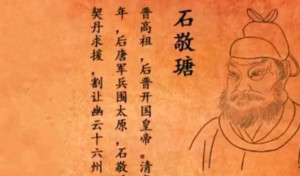 石敬瑭
晋高祖,后晋开国皇帝。清
年,后唐军兵围太原,石敬
契丹求援,割让幽云十六州